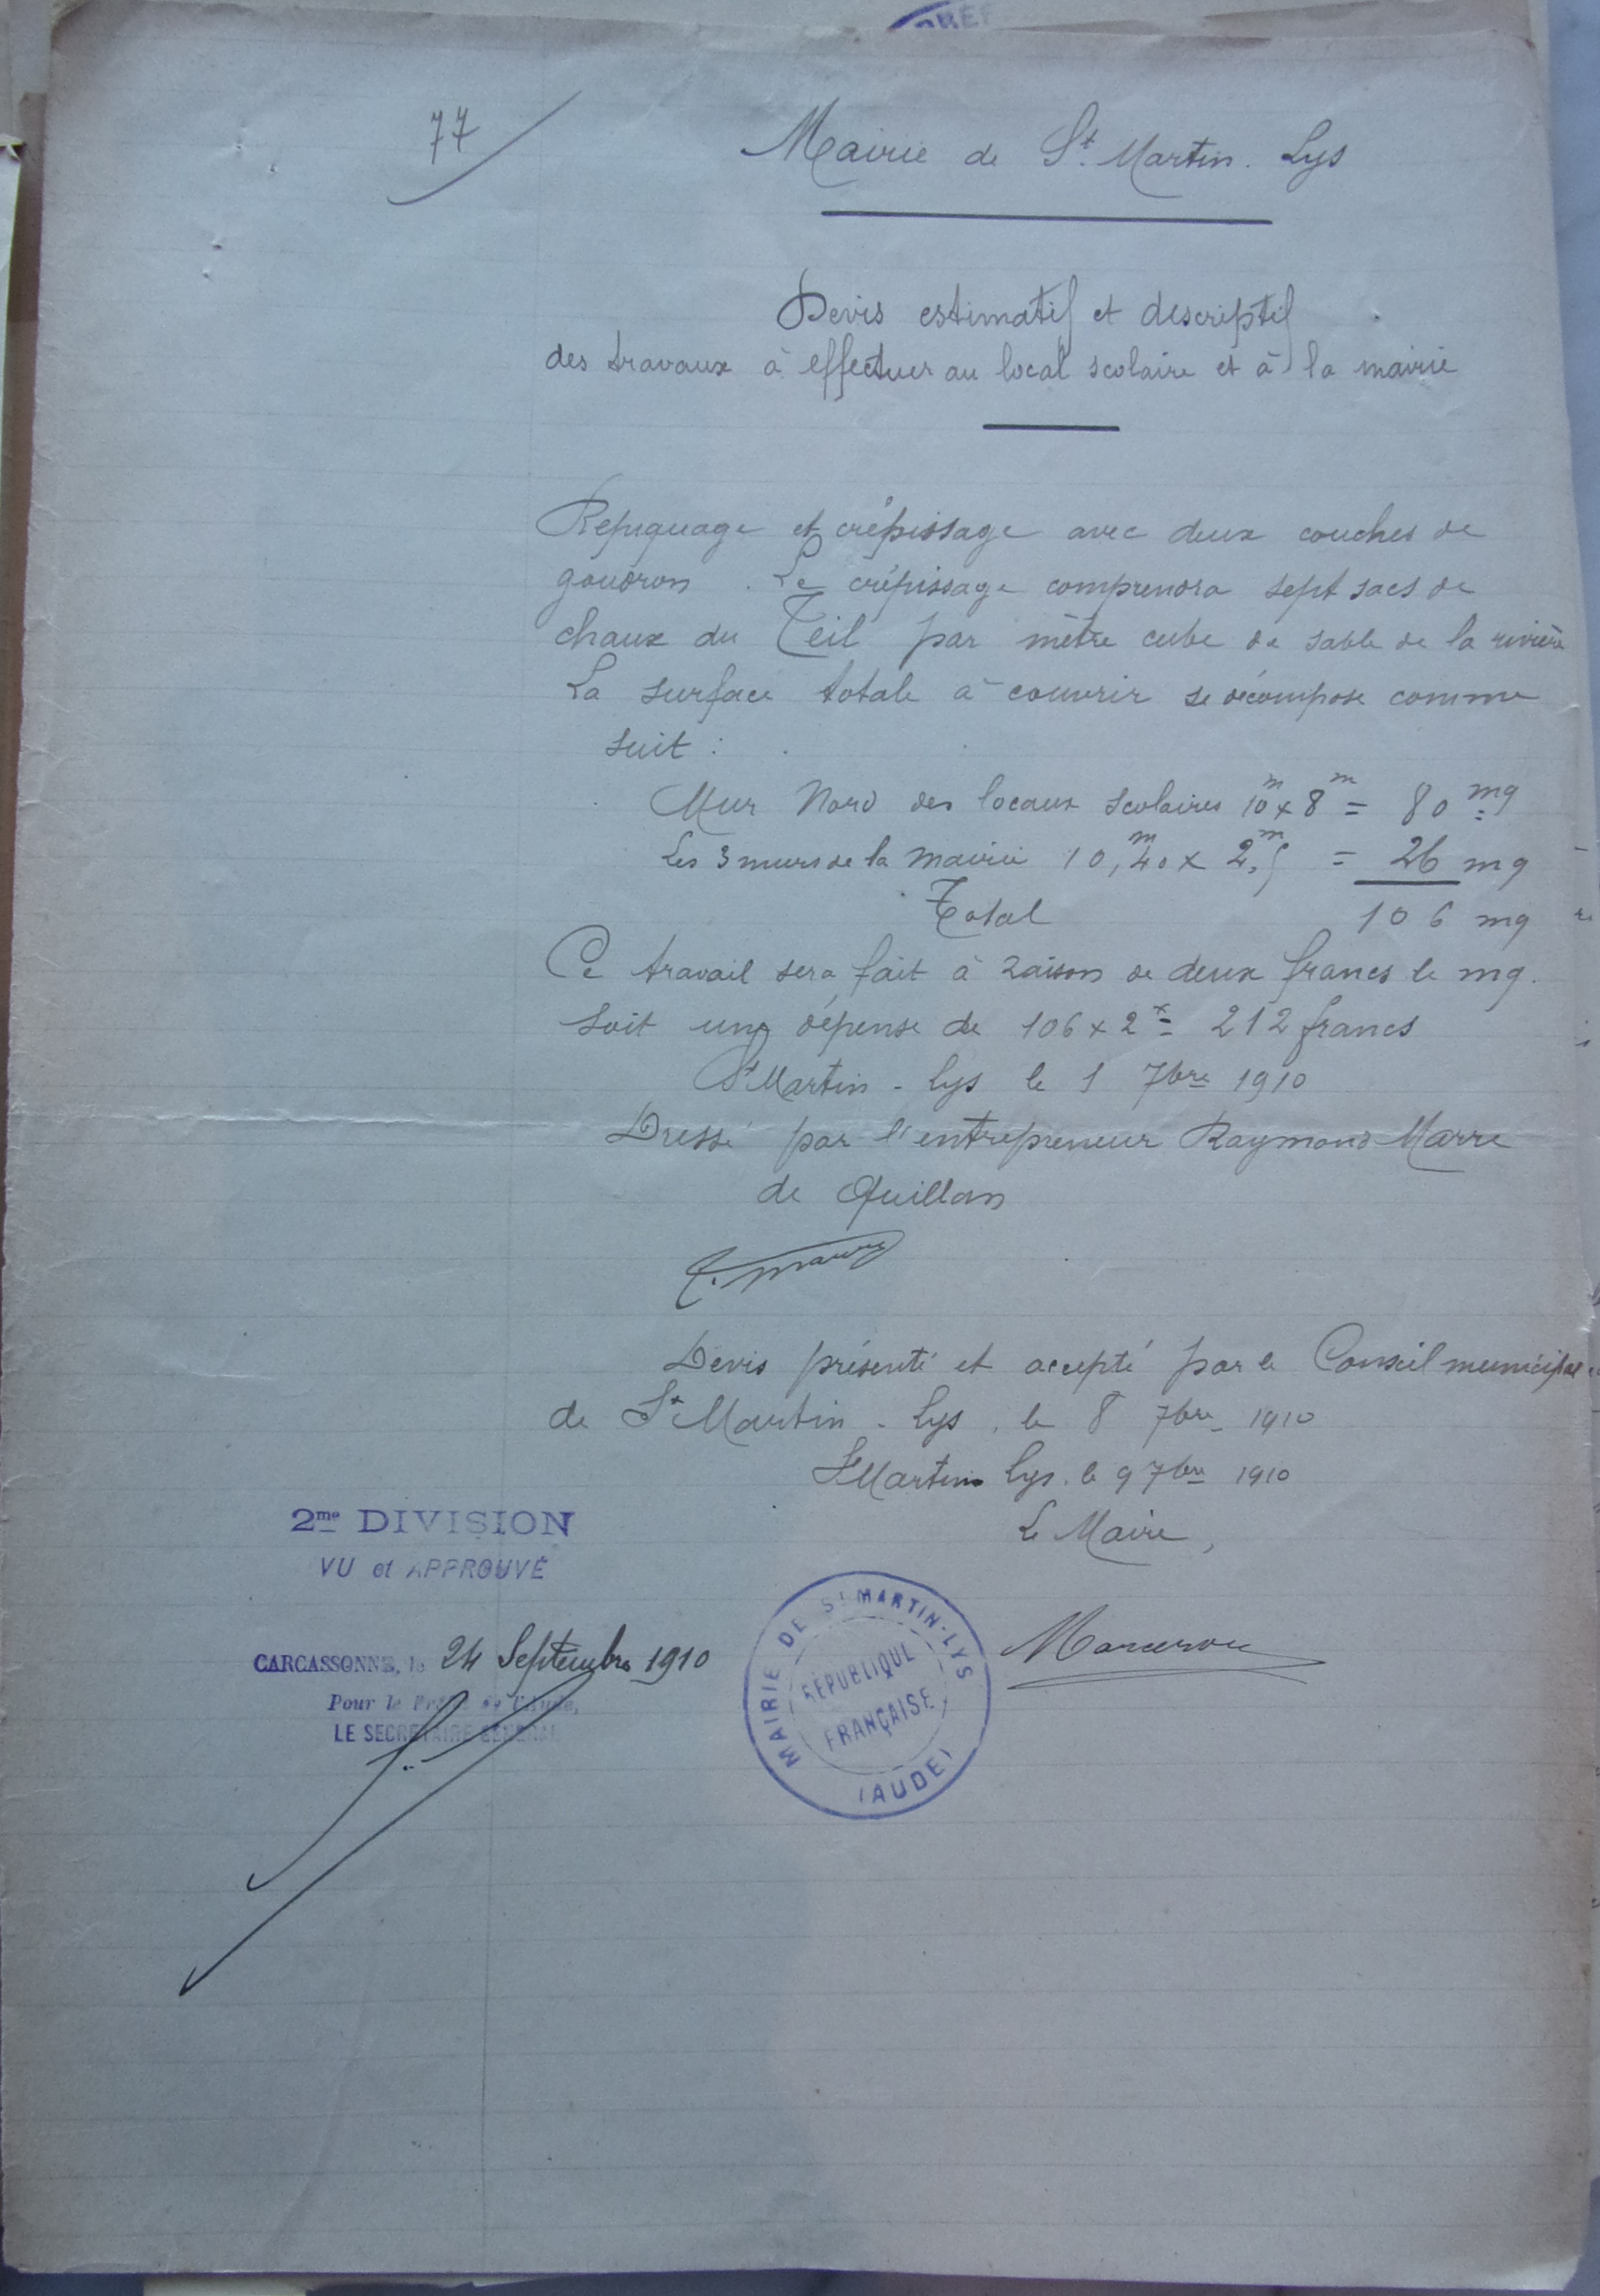 PRÉF
77
Mairie de St. Martin. Lys
Devis estimatif et descriptif
des travaux à effectuer au local scolaire et à la mairie
Repiquage et crépissage avec deux couches de
goudron. Le crépissage comprendra sept sacs de
chaux du Teil par mètre cube de sable de la rivière
La surface totale à couvrir se décompose comme
suit :
Mur Nord des locaux scolaires 10m x 8m = 80 mq
Les 3 murs de la mairie 10,m40 x 2,m5 = 26 mq
Total 106 mq
Ce travail sera fait à raison de deux francs le mq.
soit une dépense de 106 x 2 = 212 francs
St Martin - Lys le 1 7bre 1910
Dressé par l'entrepreneur Raymond Marre
de Quillan
Devis présenté et accepté par le Conseil municipal
de St Martin - Lys, le 8 7bre 1910
St Martin Lys. le 9 7bre 1910
Le Maire,
2me DIVISION
VU et APPROUVÉ
CARCASSONNE, le 24 Septembre 1910
Pour le Préfet de l'Aude,
LE SECRÉTAIRE GÉNÉRAL
MAIRIE DE St MARTIN-LYS
RÉPUBLIQUE
FRANÇAISE
(AUDE)